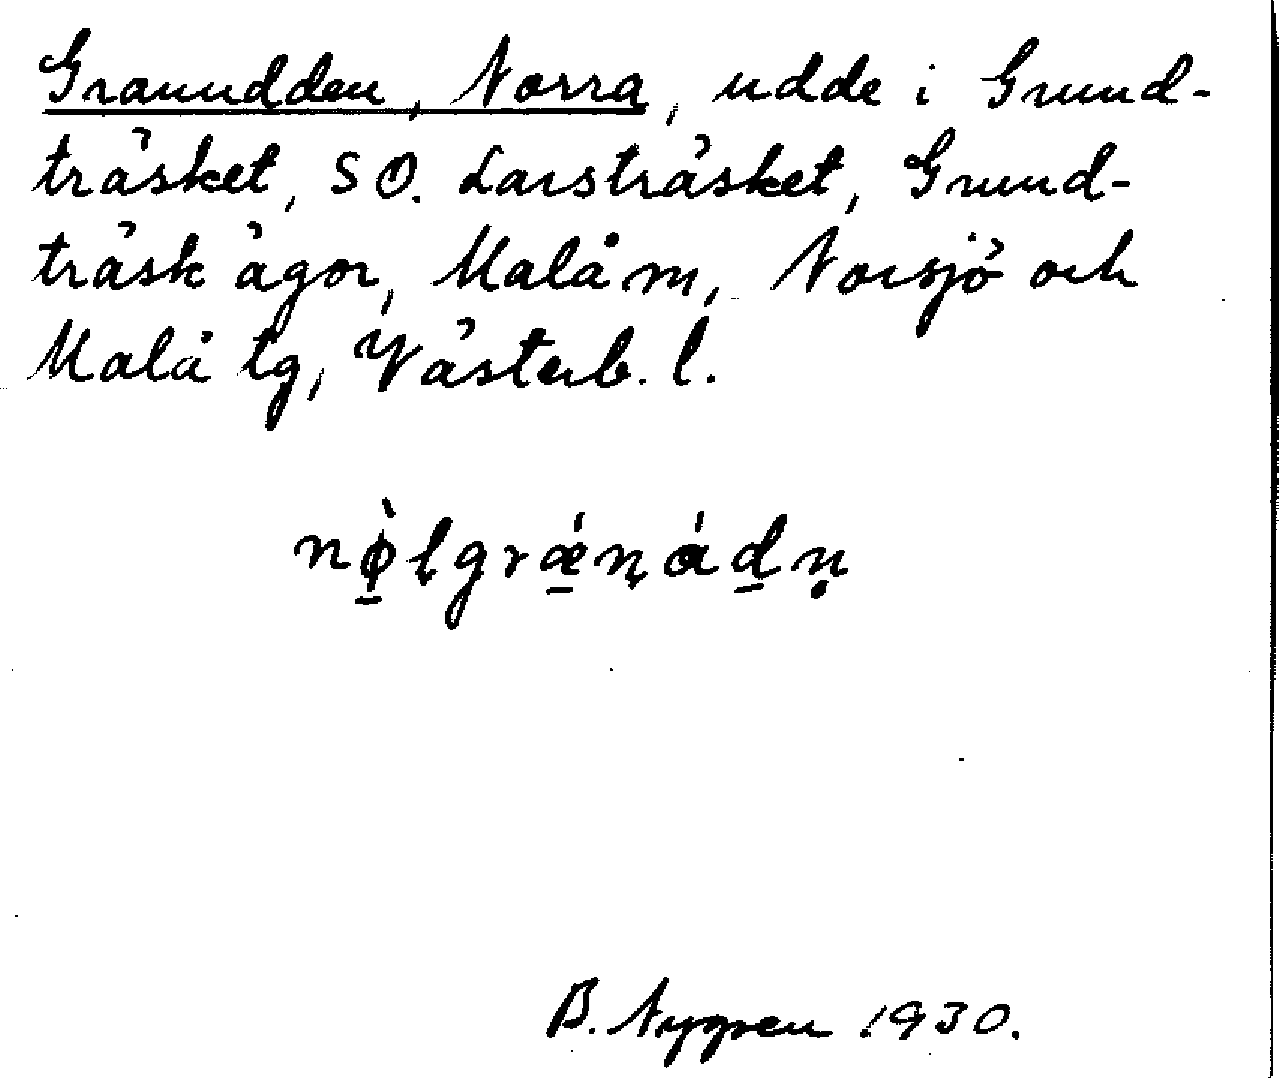 Granudden, Norra, udde i Grund-
träsket, SO. Larsträsket, Grund-
träsk ägor, Malå m, Norsjö och
Malå tg, Västerb. l.
B. Nygren 1930.